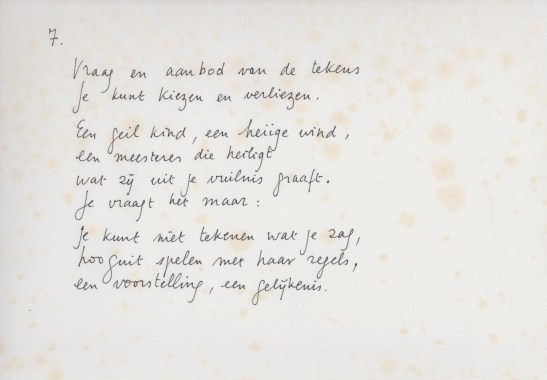 7.
Vraag en aanbod van de tekens
Je kunt kiezen en verliezen.
Een geil kind, een hevige wind,
een meesteres die heiligt
wat zij uit je vuilnis graaft.
Je vraagt het maar:
Je kunt niet tekenen wat je zag,
hooguit spelen met haar regels,
een voorstelling, een gelijkenis.